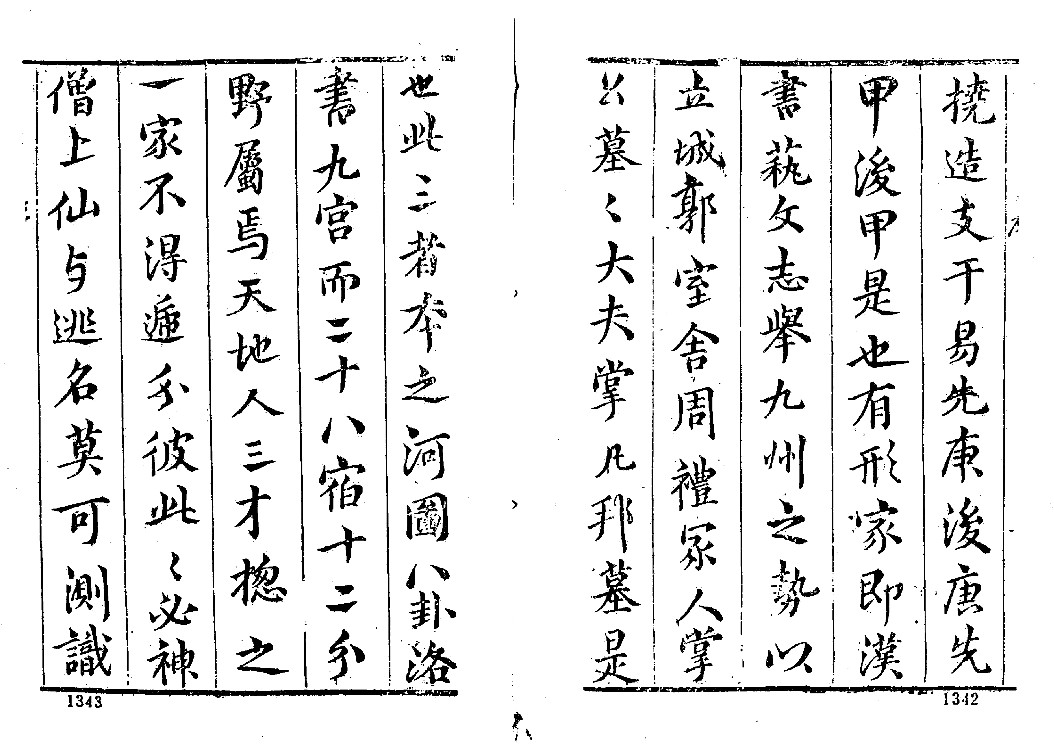 撓造支干易先庚後庚先
甲後甲是也有形家即漢
書蓺文志舉九州之勢以
立城郭室舍周禮冢人掌
公墓〻大夫掌凡邦墓是
1342
也此三者本之河圖八卦洛
書九宮而二十八宿十二分
野屬焉天地人三才揔之
一家不得遁分彼此〻必神
僧上仙与逃名莫可測識
1343